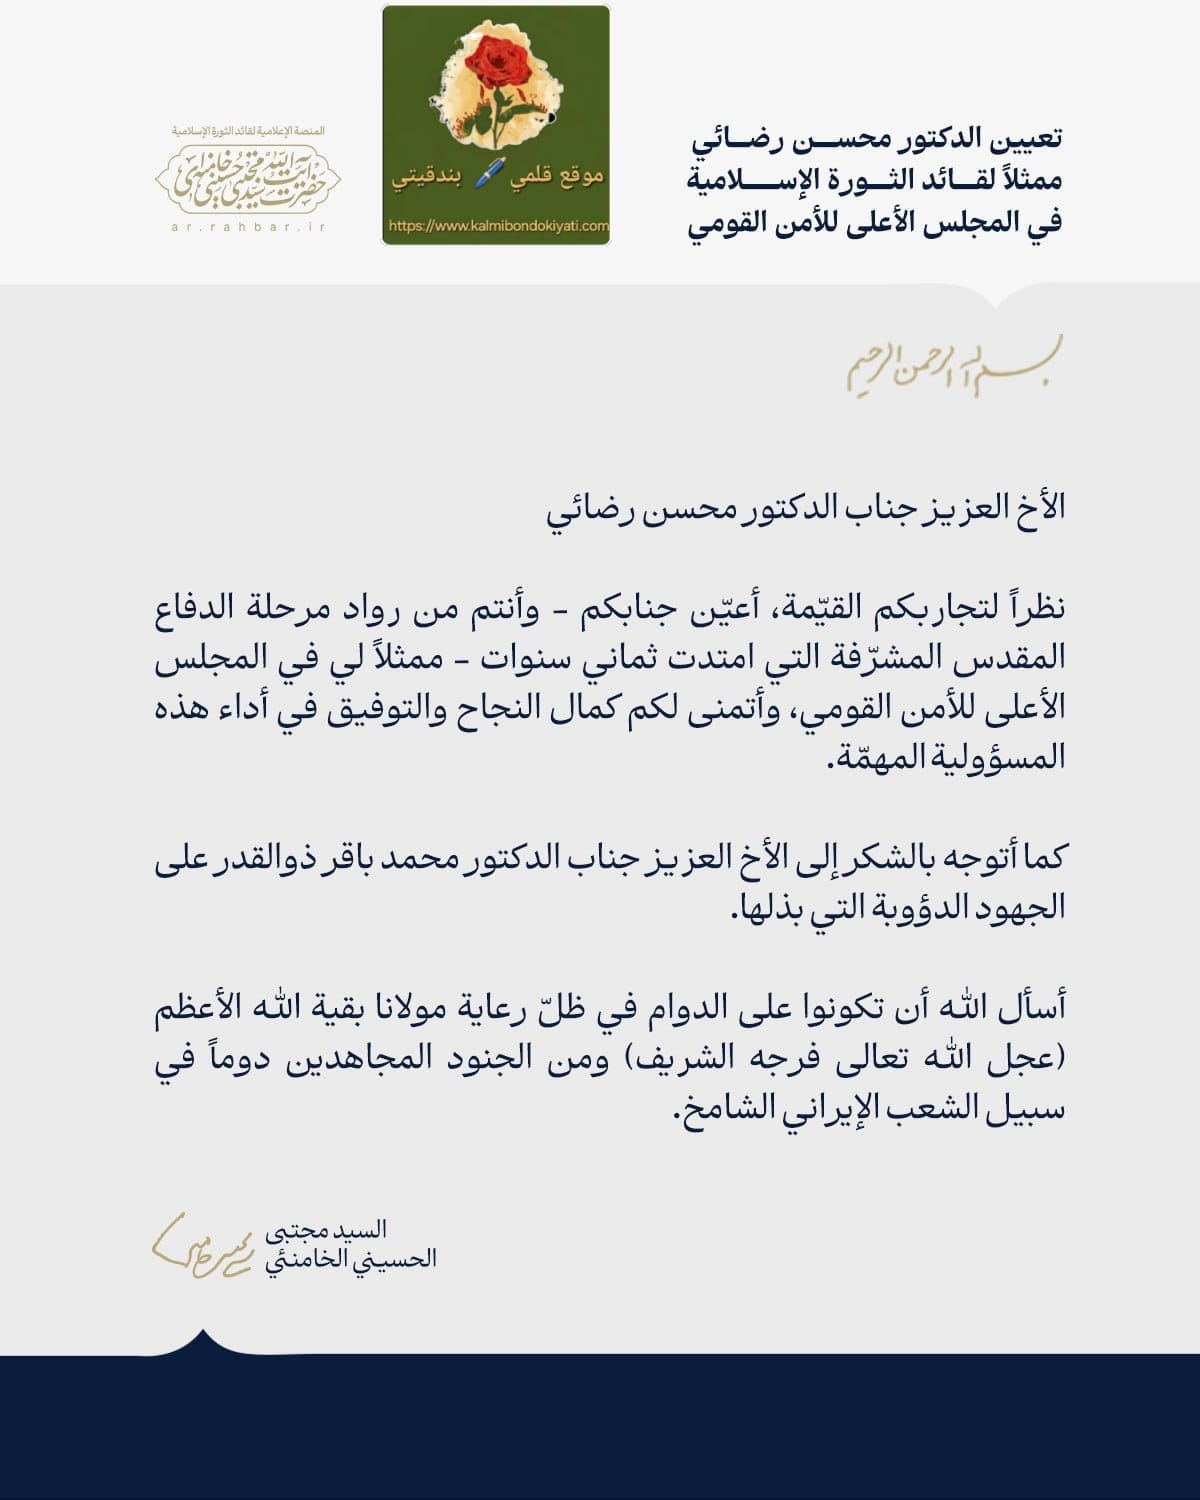 تعيين الدكتور محسن رضائي
ممثلاً لقائد الثورة الإسلامية
في المجلس الأعلى للأمن القومي
موقع قلمي بندقيتي
https://www.kalmibondokiyati.com
المنصة الإعلامية لقائد الثورة الإسلامية
حضرت آيت الله سيد مجتبى حسيني خامنه‌اى
ar.rahbar.ir
بسم الله الرحمن الرحيم
الأخ العزيز جناب الدكتور محسن رضائي
نظراً لتجاربكم القيّمة، أعيّن جنابكم – وأنتم من رواد مرحلة الدفاع
المقدس المشرّفة التي امتدت ثماني سنوات – ممثلاً لي في المجلس
الأعلى للأمن القومي، وأتمنى لكم كمال النجاح والتوفيق في أداء هذه
المسؤولية المهمّة.
كما أتوجه بالشكر إلى الأخ العزيز جناب الدكتور محمد باقر ذوالقدر على
الجهود الدؤوبة التي بذلها.
أسأل الله أن تكونوا على الدوام في ظلّ رعاية مولانا بقية الله الأعظم
(عجل الله تعالى فرجه الشريف) ومن الجنود المجاهدين دوماً في
سبيل الشعب الإيراني الشامخ.
السيد مجتبى
الحسيني الخامنئي